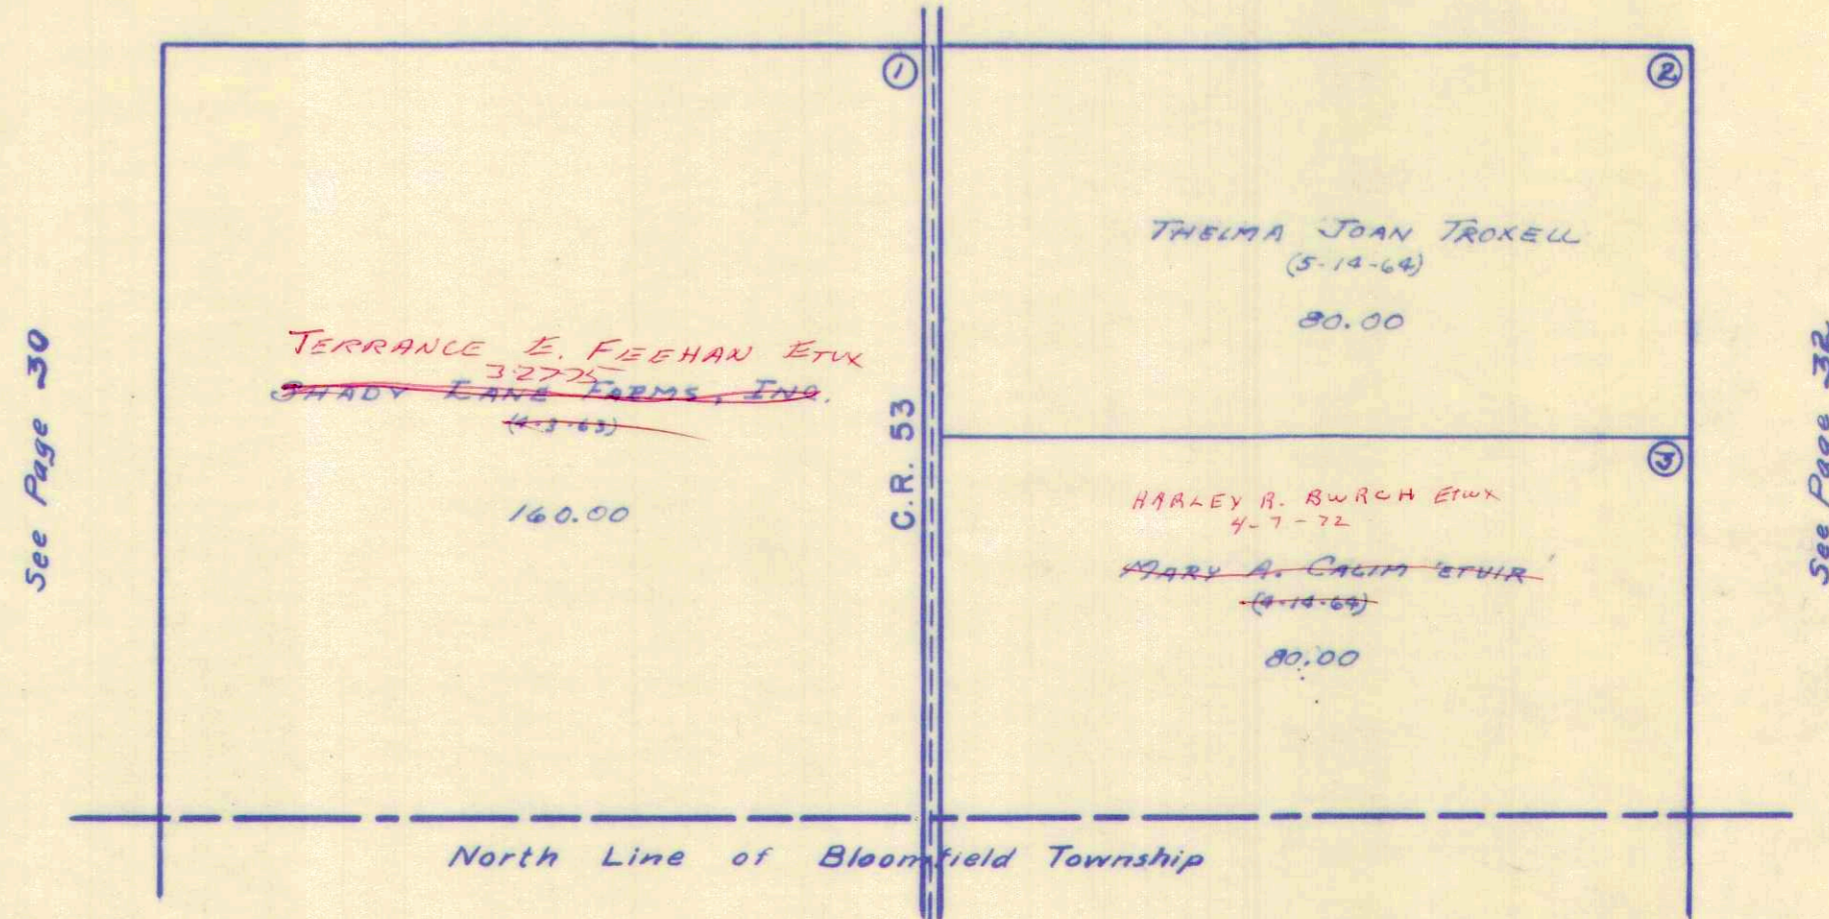 See Page 30
①
TERRANCE E. FEEHAN ETUX
3-27-75
SHADY LANE FARMS, INC.
(4-3-63)
160.00
C.R. 53
②
THELMA JOAN TROXELL
(5-14-64)
80.00
③
HARLEY R. BURCH ETUX
4-7-72
MARY A. CALIM ETVIR
(4-14-64)
80.00
See Page 32
North Line of Bloomfield Township